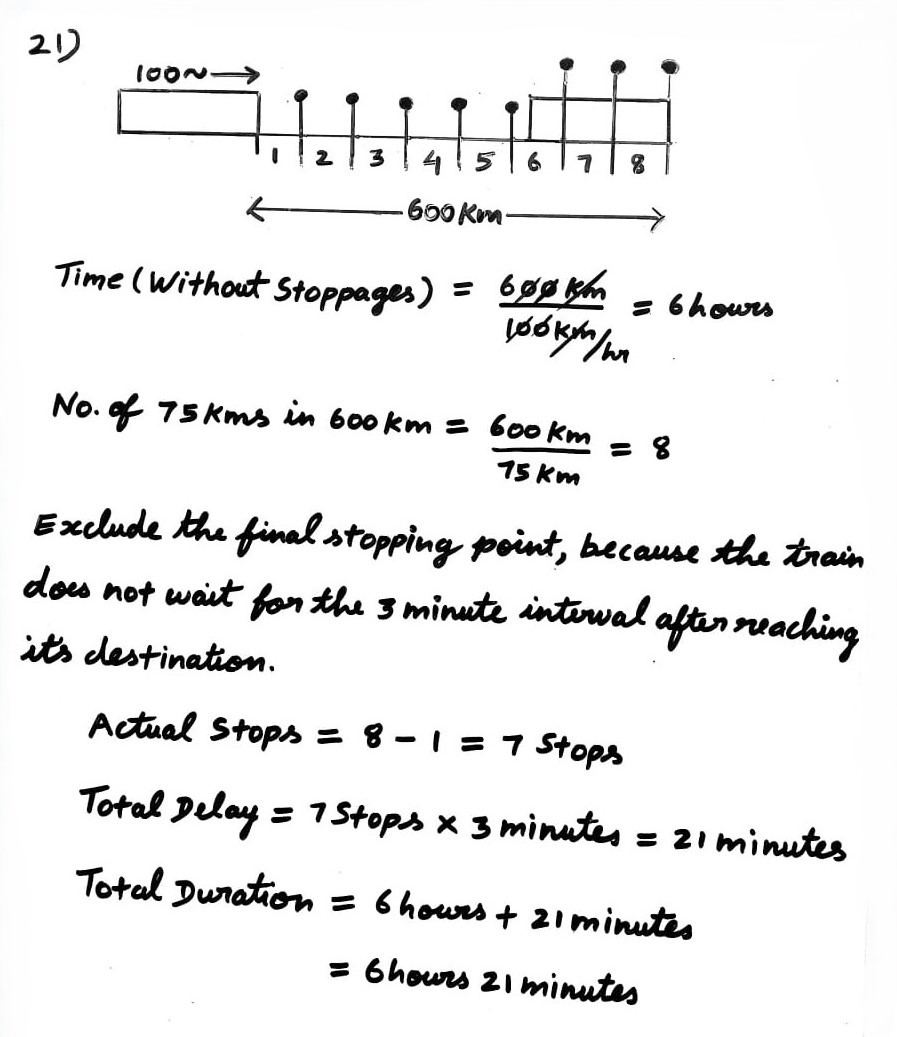 21)
100~→
1 2 3 4 5 6 7 8
600 Km
Time (Without Stoppages) = 600 Km / 100 Km/hr = 6 hours
No. of 75 Kms in 600 km = 600 Km / 75 Km = 8
Exclude the final stopping point, because the train
does not wait for the 3 minute interval after reaching
it's destination.
Actual Stops = 8 - 1 = 7 Stops
Total Delay = 7 Stops x 3 minutes = 21 minutes
Total Duration = 6 hours + 21 minutes
= 6 hours 21 minutes